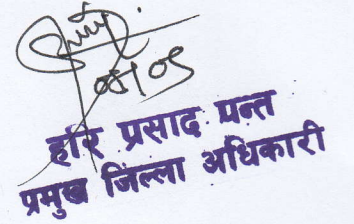 ०५/०५
हरि प्रसाद पन्त
प्रमुख जिल्ला अधिकारी